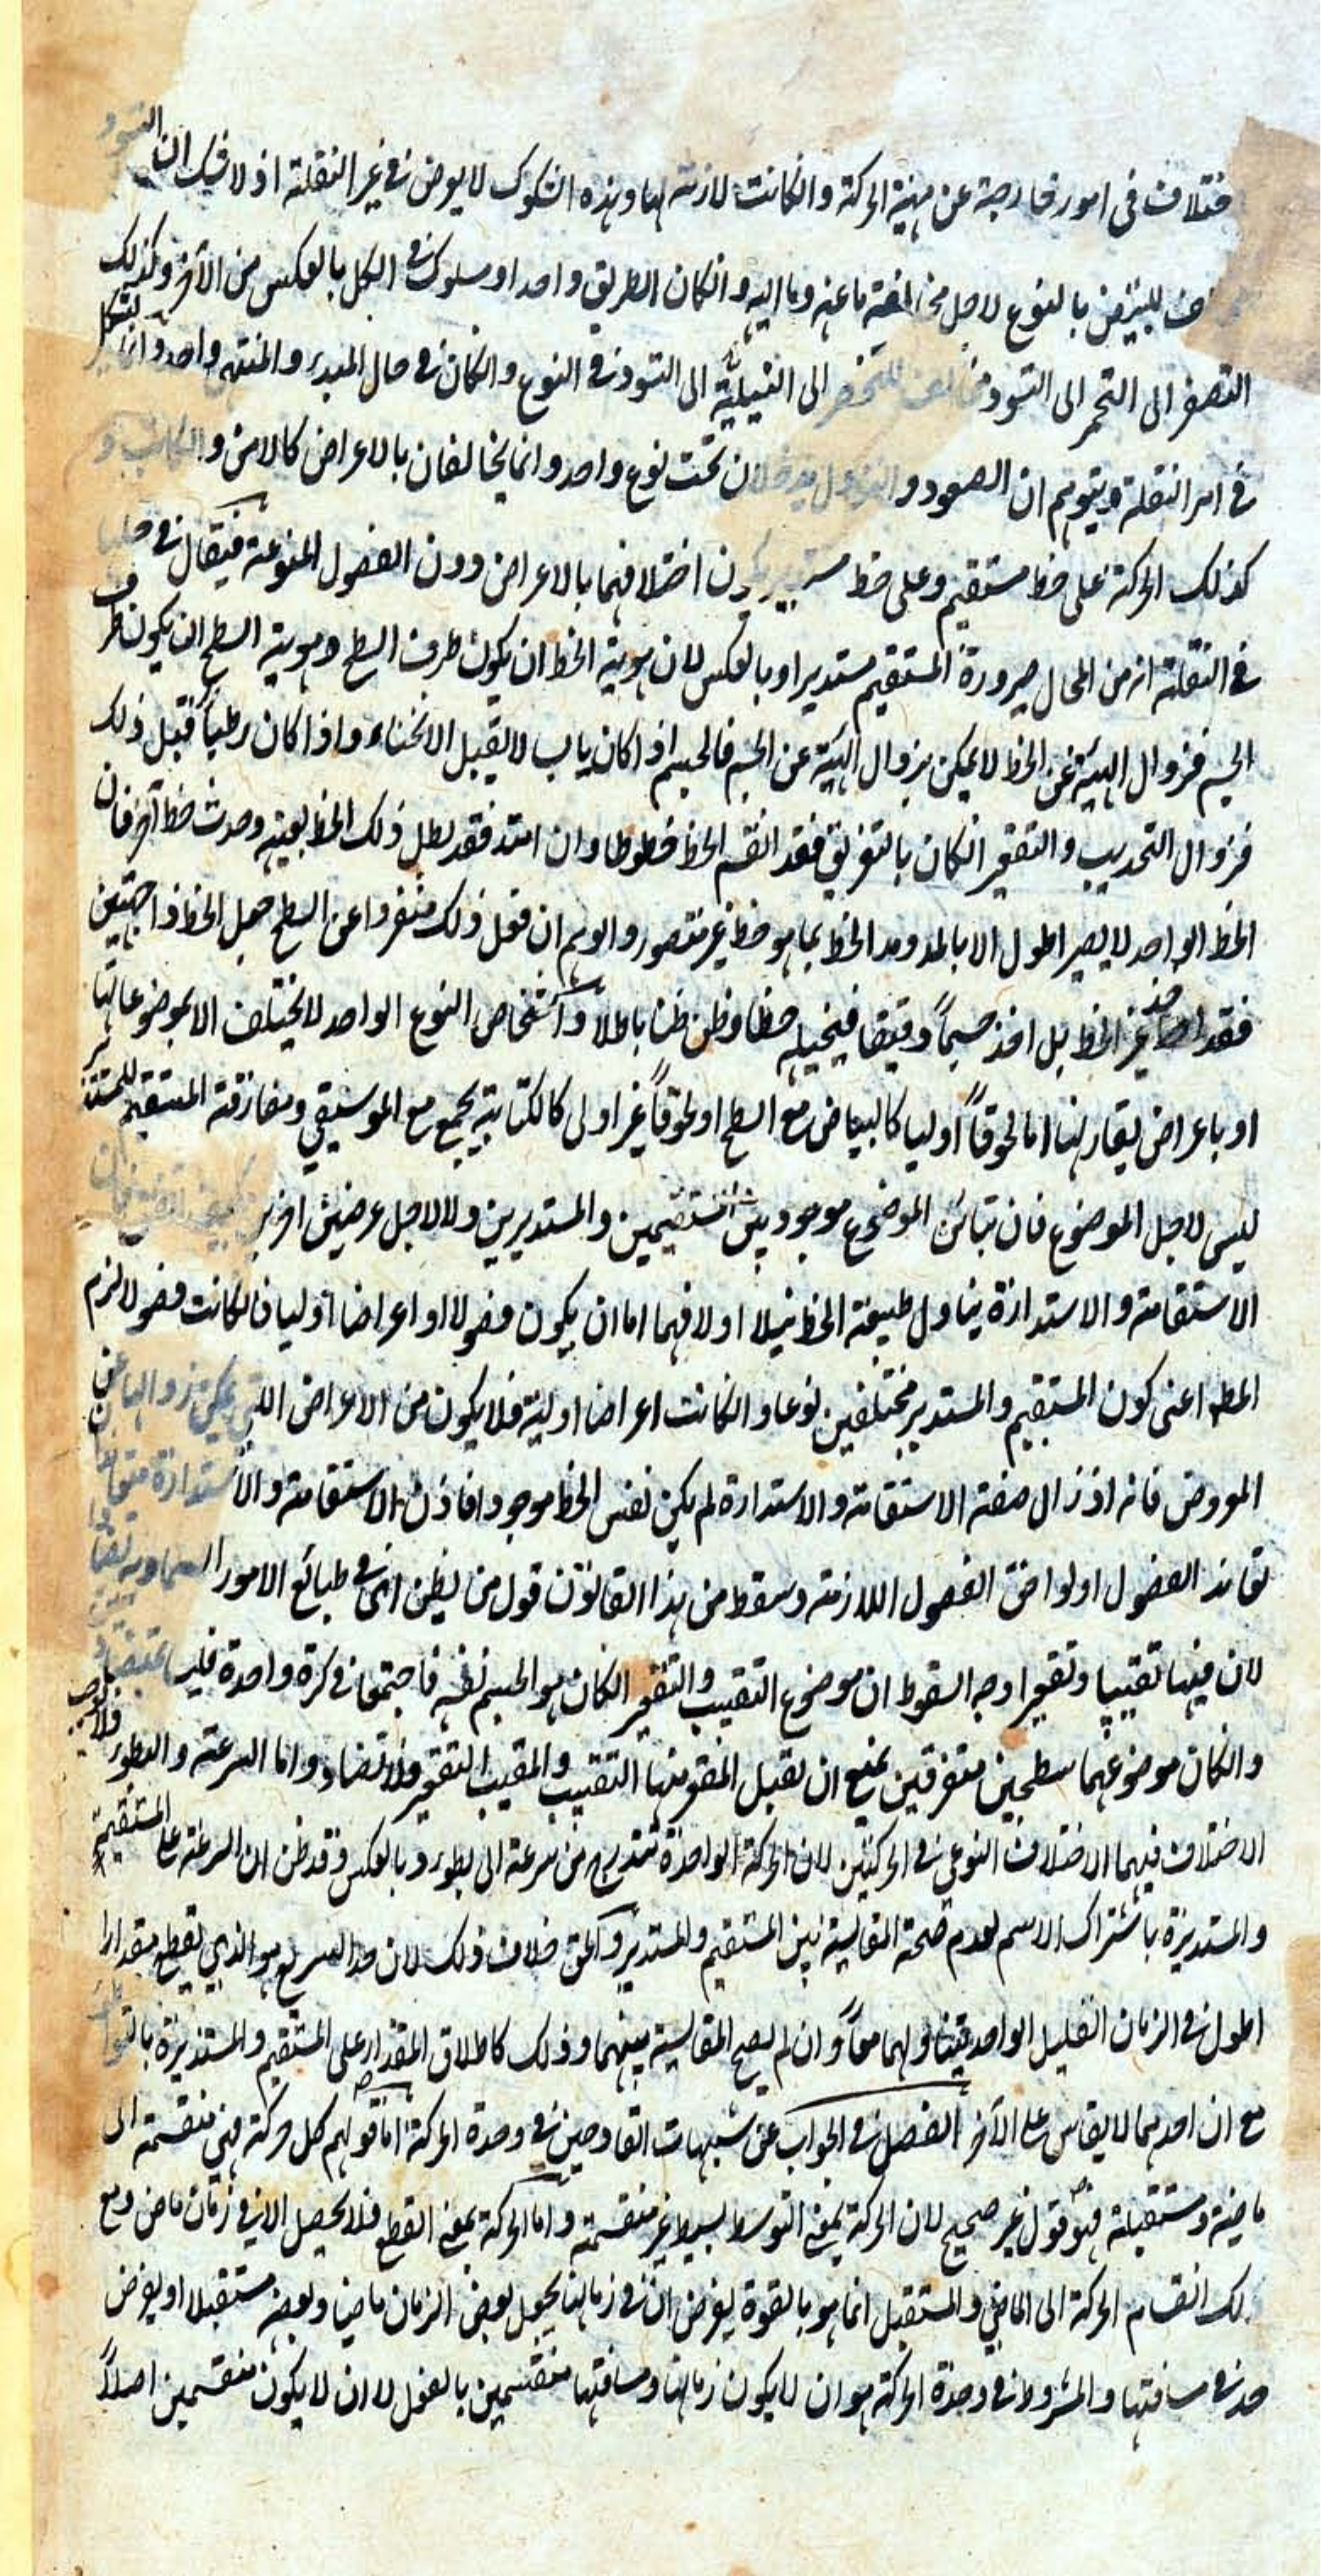 ختلاف فى امور خارجة عن مهية الحركة وانكانت لازمة لها وهذه الشكوك لا يعرض فى غير النقلة اذ لا شك ان التسود
للتبيض بالنوع لاجل مخالفة ما عنه وما اليه وانكان الطريق واحدا وسلوك فى الكل بالعكس من الآخر وكذلك
التصفر الى التحمر الى التسود مخالف للتخضر الى النيلية الى التسود فى النوع وانكان فى حال المبدء والمنتهى واحدا وانما يشكل
فى امر النقلة ويتوهم ان الصعود والنزول يدخلان تحت نوع واحد وانما يخالفان بالاعراض كالامن والكاتب و
كذلك الحركة على خط مستقيم وعلى خط مستدير يكون اختلافهما بالاعراض دون الفصول المنوعة فيقال فى حلها
فى النقلة انه من المحال صيرورة المستقيم مستديرا وبالعكس لان هوية الخط ان يكون طرف السطح وهوية السطح ان يكون طرف
الجسم فزوال الهيئة عن الخط لا يمكن بزوال الهيئة عن الجسم فالجسم اذا كان يابسا لا يقبل الانحناء واذا كان رطبا قبل ذلك
فزوال التحديب والتقعير انكان بالتفريق فقد انقسم الخط خطوطا وان امتد فقد بطل ذلك الخط بعينه وحدث خط آخر فان
الخط الواحد لا يصير اطول الا بالمد ومد الخط بما هو خط غير متصور والوهم ان فعل ذلك منفردا عن السطح جعل الخط ذا جهتين
فقد اخذ غير الخط بل اخذ جسماً دقيقا فيتخيله خطا وظن ظنا باطلاً وأشخاص النوع الواحد لا يختلف الا بموضوعاتها
او باعراض يقارنها اما لحوقاً أوليا كالبياض مع السطح او لحوقاً غير اولى كالكتابة يجمع مع الموسيقى ومفارقة المستقيم للمستدير
ليس لاجل الموضوع فان تباين الموضوع موجود بين المستقيمين والمستديرين ولا لاجل عرضين آخرين
الاستقامة والاستدارة يتناول طبيعة الخط نيلا اولا فهما اما ان يكون فصولا او اعراضا أوليا فانكانت فصولا لزم
المط اعنى كون المستقيم والمستدير مختلفين نوعا وانكانت اعراضا اولية فلا يكون من الاعراض التى يمكن زوالها عن
المعروض فانه اذ زال صفة الاستقامة والاستدارة لم يكن نفس الخط موجودا فاذن الاستقامة والاستدارة
تعاند الفصول اولواحق الفصول اللازمة وسقط من هذا القانون قول من يظن ان فى طبائع الامور السماوية تضادا
لان فيها تقبيبا وتقعيرا وجه السقوط ان موضوع التقبيب والتقعير انكان هو الجسم نفسه فاجتمعا فى كرة واحدة فليسا بمتضادين
وانكان موضوعهما سطحين متفرقين يمتنع ان يقبل المقعر منها التقبيب والمقبب التقعير فلا تضاد واما السرعة والبطوء فلا يوجب
الاختلاف فيهما الاختلاف النوعى فى الحركتين لان الحركة الواحدة تتدرج من سرعة الى بطوء وبالعكس وقد ظن ان السرعة على المستقيمة
والمستديرة باشتراك الاسم لعدم صحة المقايسة بين المستقيم والمستدير والحق خلاف ذلك لان حد السريع هو الذى يقطع مقدارا
اطول فى الزمان القليل الواحد يتناولهما معاً وان لم يصح المقايسة بينهما وذلك كاطلاق المقدار على المستقيم والمستديرة بالتواطئ
مع ان احدهما لا يقاس على الآخر الفصل فى الجواب عن شبهات القادحين فى وحدة الحركة اما قولهم كل حركة فهى منقسمة الى
ماضية ومستقبلة فهو قول غير صحيح لان الحركة بمعنى التوسط بسيط غير منقسمة واما الحركة بمعنى القطع فلا يحصل الا فى زمان ماض ومع
ذلك انقسام الحركة الى الماضى والمستقبل انما هو بالقوة يفرض آن فى زمانها يجعل بعض الزمان ماضيا وبعضه مستقبلا او يفرض
حد فى مسافتها والمشروط فى وحدة الحركة هو ان لا يكون زمانها ومسافتها منقسمين بالفعل لا ان لا يكون منقسمين اصلاً